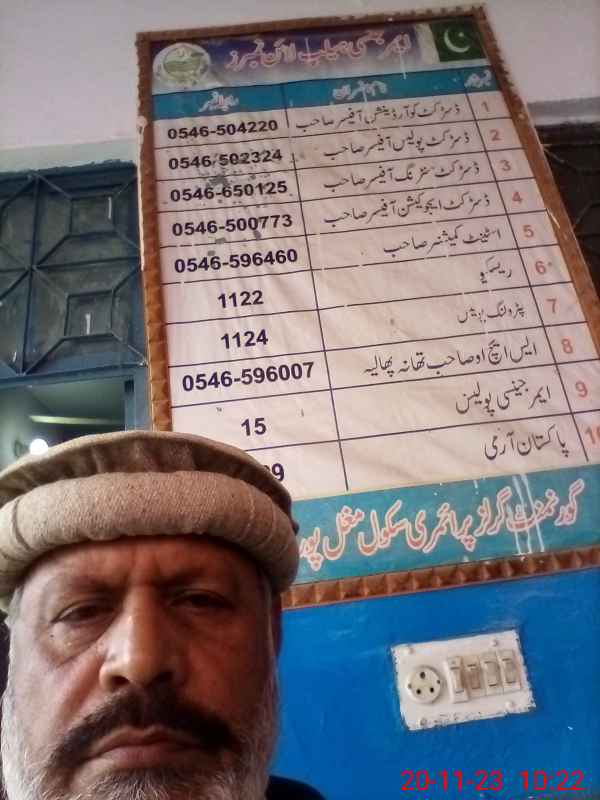 ایمرجنسی ہیلپ لائن نمبرز
نمبر شمار نام افسران رابطہ نمبر
1 ڈسڑکٹ کوآرڈینشن آفیسر صاحب 0546-504220
2 ڈسڑکٹ پولیس آفیسر صاحب 0546-502324
3 ڈسڑکٹ آفیسر صاحب 0546-650125
4 ڈسڑکٹ ایجوکیشن آفیسر صاحب 0546-500773
5 اسٹینٹ کمیشنر صاحب 0546-596460
6 ریسکیو 1122
7 پٹرولنگ پولیس 1124
8 ایس ایچ او صاحب تھانہ پھالیہ 0546-596007
9 ایمرجینسی پولیس 15
10 پاکستان آرمی
گورنمنٹ گرلز پرائمری سکول مغل پور
20-11-23 10:22